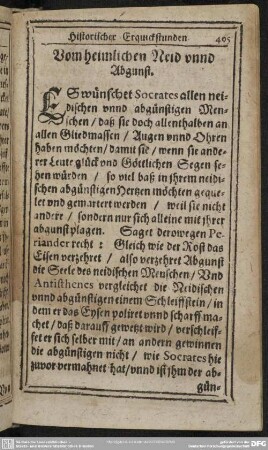 Historischer Erquickstunden 465
Vom heimlichen Neid vnnd
Abgunst.
ES wünschet Socrates allen nei-
dischen vnnd abgünstigen Men-
schen / daß sie doch allenthalben an
allen Gliedmassen / Augen vnnd Ohren
haben möchten / damit sie / wenn sie ande-
rer Leute glück vnd Göttlichen Segen se-
hen würden / so viel baß in jhrem neidi-
schen abgünstigen Hertzen möchten geque-
let vnd gemartert werden / weil sie nicht
andere / sondern nur sich alleine mit jhrer
abgunst plagen. Saget derowegen Pe-
riander recht: Gleich wie der Rost das
Eisen verzehret / also verzehret Abgunst
die Seele des neidischen Menschen / Vnd
Antisthenes vergleichet die Neidischen
vnnd abgünstigen einem Schleiffstein / in
dem er das Eysen poliret vnnd scharff ma-
chet / daß darauff gewetzt wird / verschleif-
fet er sich selber mit / an andern gewinnen
die abgünstigen nicht / wie Socrates hie
zuvor vermahnet hat / vnnd ist jhm der ab-
gün-